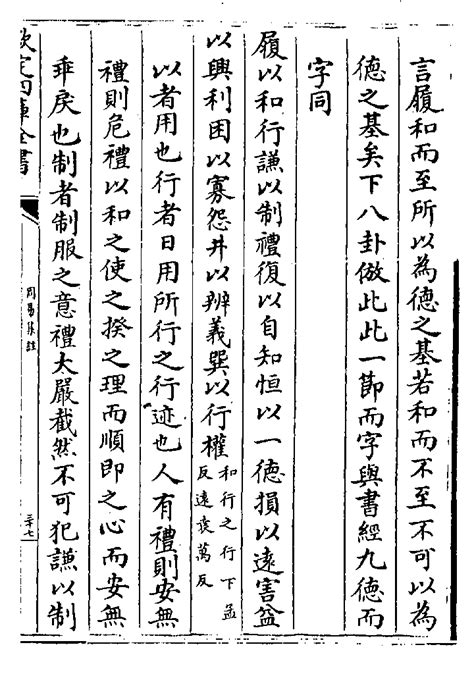 言履和而至所以為德之基若和而不至不可以為
德之基矣下八卦倣此此一節而字與書經九德而
字同
履以和行謙以制禮復以自知恒以一德損以遠害益
以興利困以寡怨井以辨義巽以行權
和行之行下孟
反遠袁萬反
以者用也行者日用所行之行迹也人有禮則安無
禮則危禮以和之使之揆之理而順即之心而安無
乖戾也制者制服之意禮大嚴截然不可犯謙以制
欽定四庫全書
周易集註